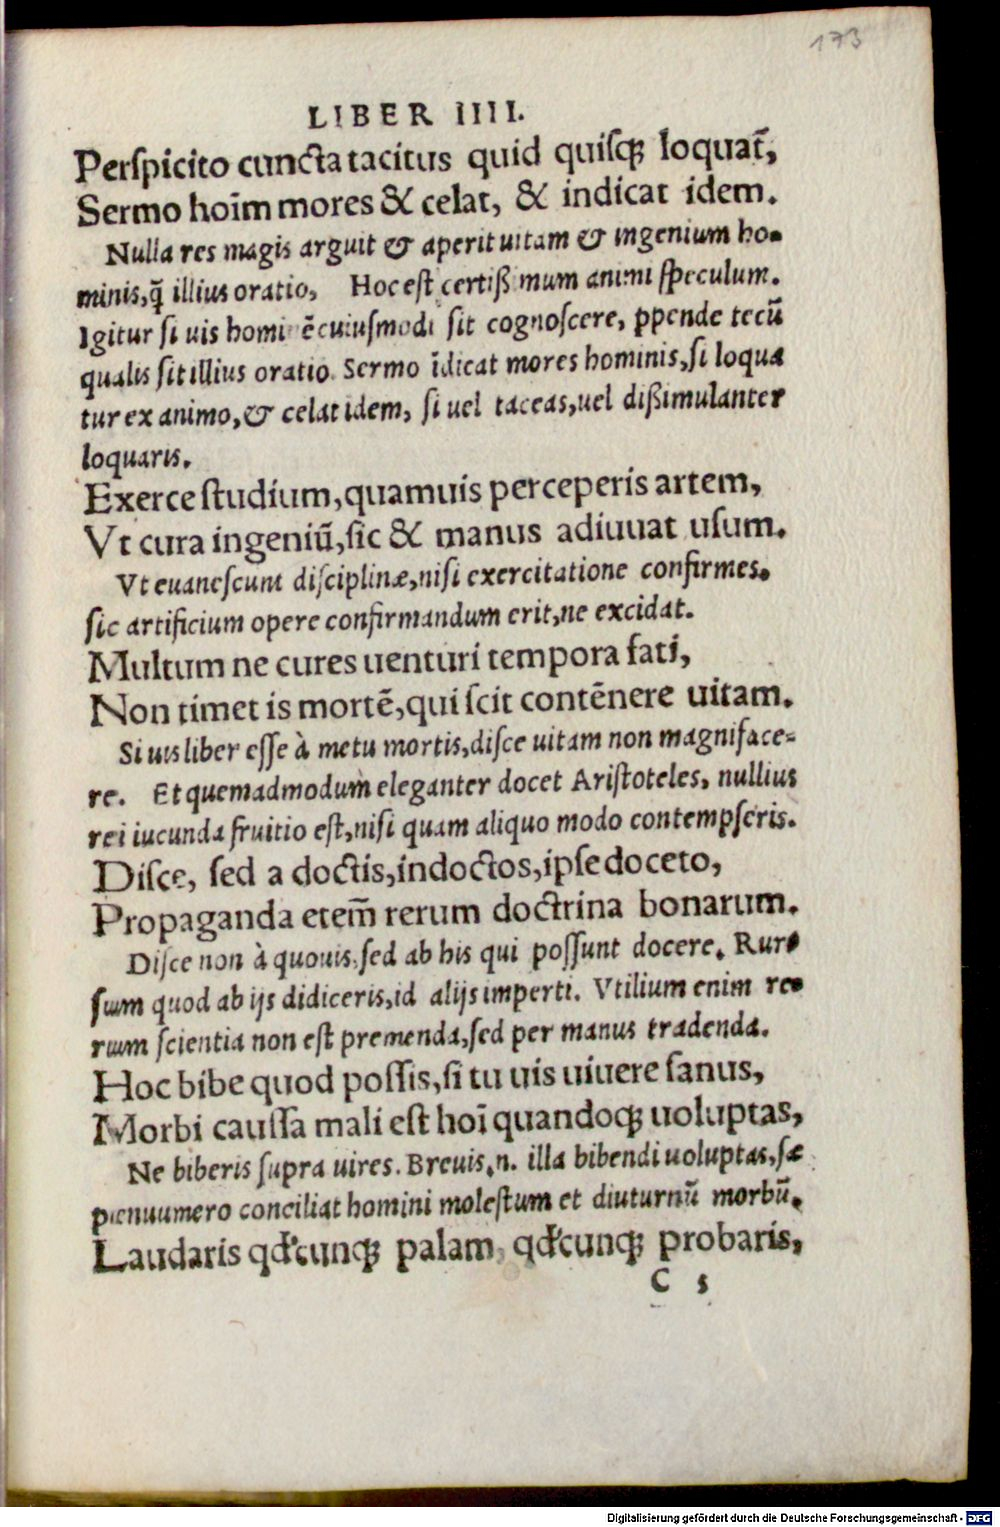 173
LIBER IIII.
Perſpicito cuncta tacitus quid quiſqꝫ loquat̃,
Sermo hoīm mores & celat, & indicat idem.
Nulla res magis arguit & aperit uitam & ingenium ho-
minis, q̄ illius oratio, Hoc est certißimum animi ſpeculum.
Igitur ſi uis homi ē cuiuſmodi ſit cognoſcere, ppende tecū
qualis ſit illius oratio. Sermo īdicat mores hominis, ſi loqua
tur ex animo, & celat idem, ſi uel taceas, uel dißimulanter
loquaris.
Exerce ſtudium, quamuis perceperis artem,
Vt cura ingeniū, ſic & manus adiuuat uſum.
Vt euaneſcunt diſciplinæ, niſi exercitatione confirmes.
ſic artificium opere confirmandum erit, ne excidat.
Multum ne cures uenturi tempora fati,
Non timet is mortē, qui ſcit contēnere uitam.
Si uis liber eſſe à metu mortis, diſce uitam non magniface-
re. Et quemadmodum eleganter docet Ariſtoteles, nullius
rei iucunda fruitio eſt, niſi quam aliquo modo contempſeris.
Diſce, ſed a doctis, indoctos, ipſe doceto,
Propaganda etem̄ rerum doctrina bonarum.
Diſce non à quouis, ſed ab his qui poſſunt docere. Rur-
ſum quod ab ijs didiceris, id alijs imperti. Vtilium enim re-
rum ſcientia non eſt premenda, ſed per manus tradenda.
Hoc bibe quod poſſis, ſi tu uis uiuere ſanus,
Morbi cauſſa mali eſt hoī quandoqꝫ uoluptas,
Ne biberis ſupra uires. Breuis.n. illa bibendi uoluptas, ſæ
penuumero conciliat homini moleſtum et diuturnū morbū.
Laudaris qd̕cunqꝫ palam, qd̕cunqꝫ probaris,
C s
Digitalisierung gefördert durch die Deutsche Forschungsgemeinschaft - DFG